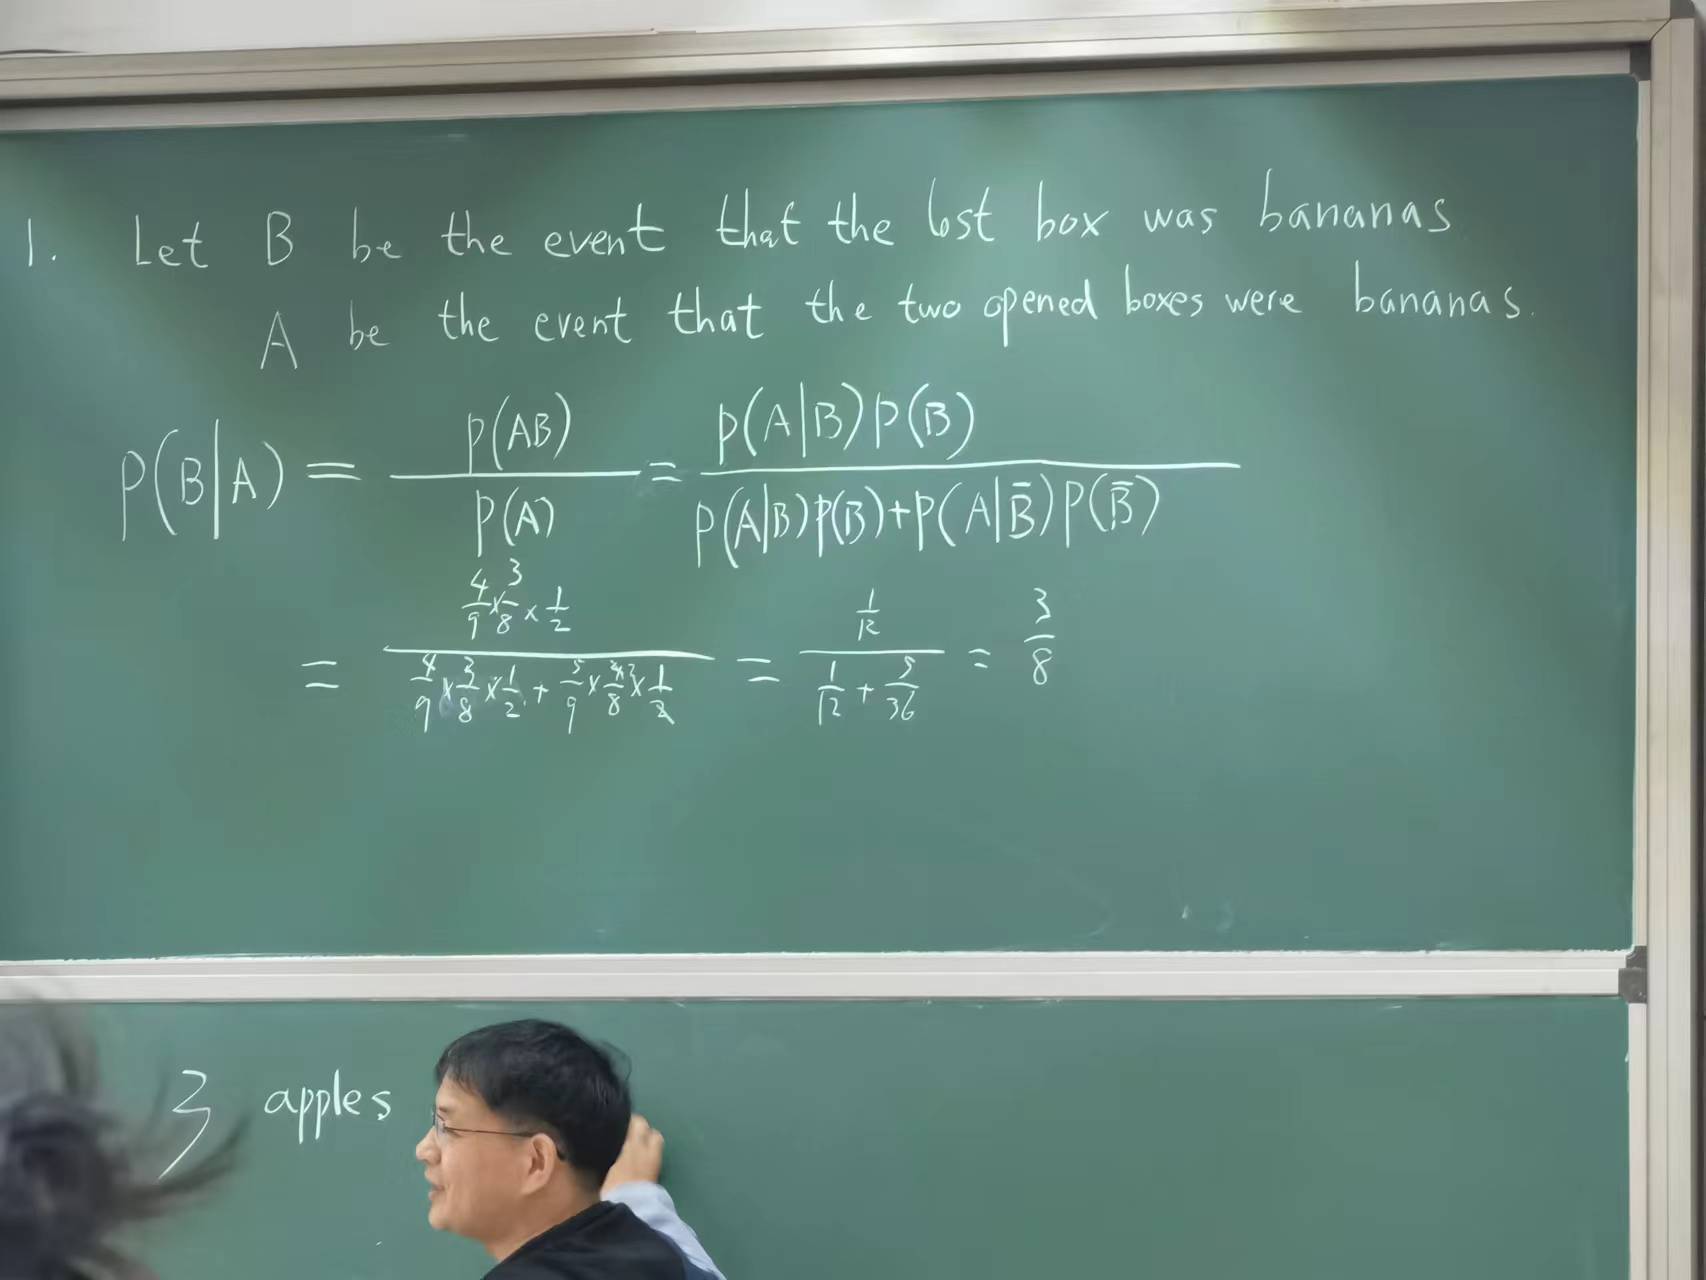 1. Let B be the event that the lost box was bananas
A be the event that the two opened boxes were bananas.
P(B|A) = P(AB)/P(A) = P(A|B)P(B)/(P(A|B)P(B)+P(A|B̄)P(B̄))
= (4/9 × 3/8 × 1/2)/(4/9 × 3/8 × 1/2 + 5/9 × 4/8 × 1/2) = (1/12)/(1/12 + 5/36) = 3/8
3 apples